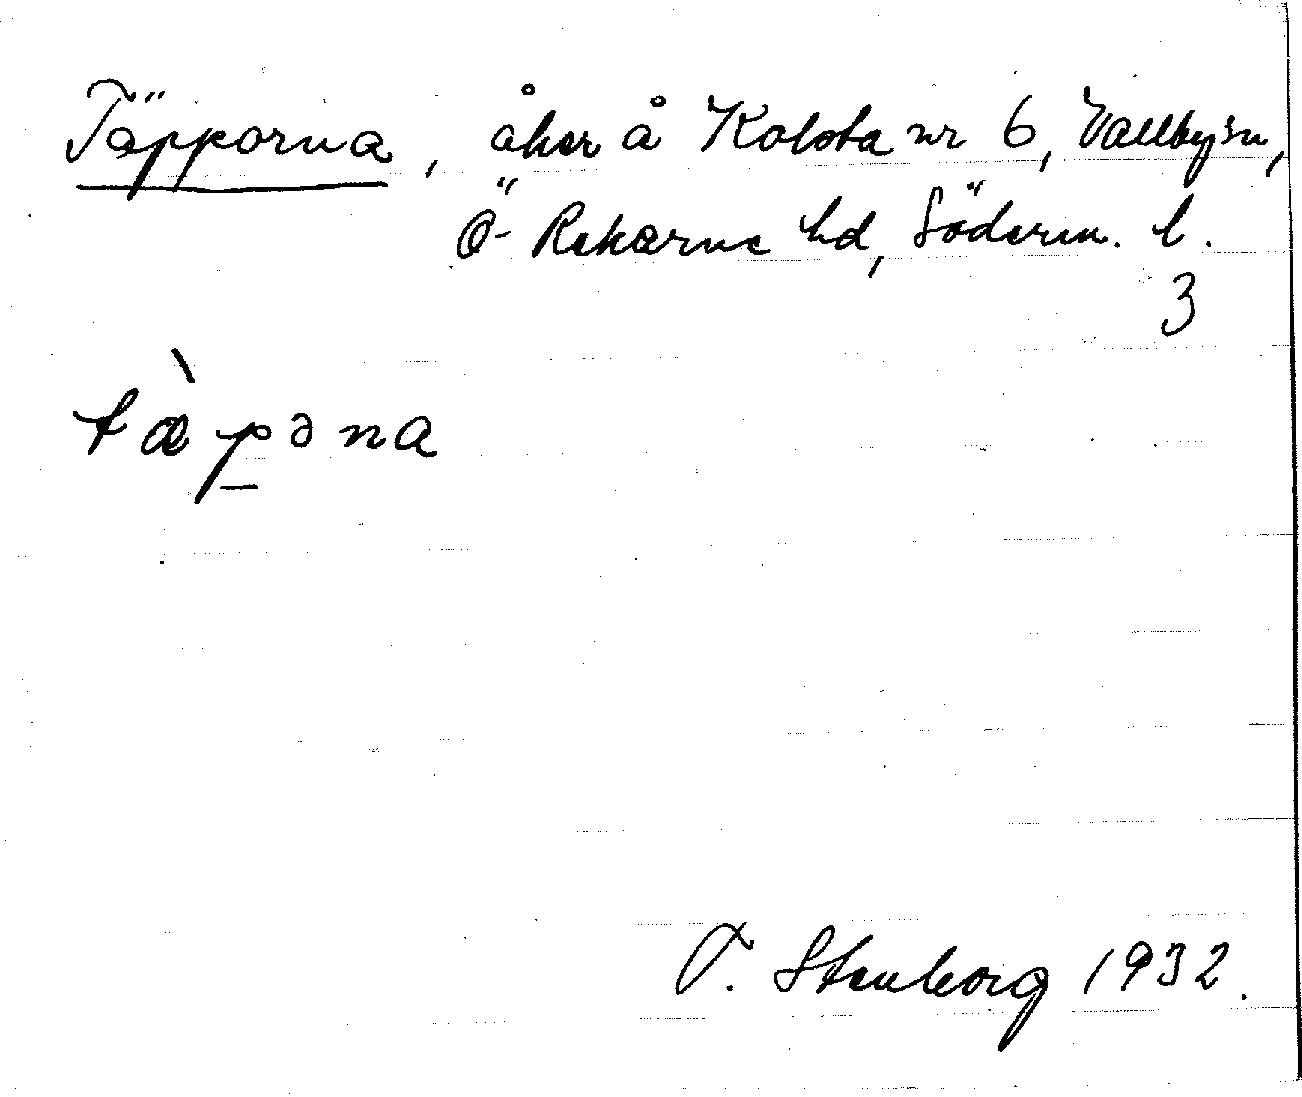 Täpporna, åker å Kolsta nr 6, Vallby sn,
Ö- Rekarne hd, Söderm. l.
3
tæ̀pəna
O. Stenborg 1932.